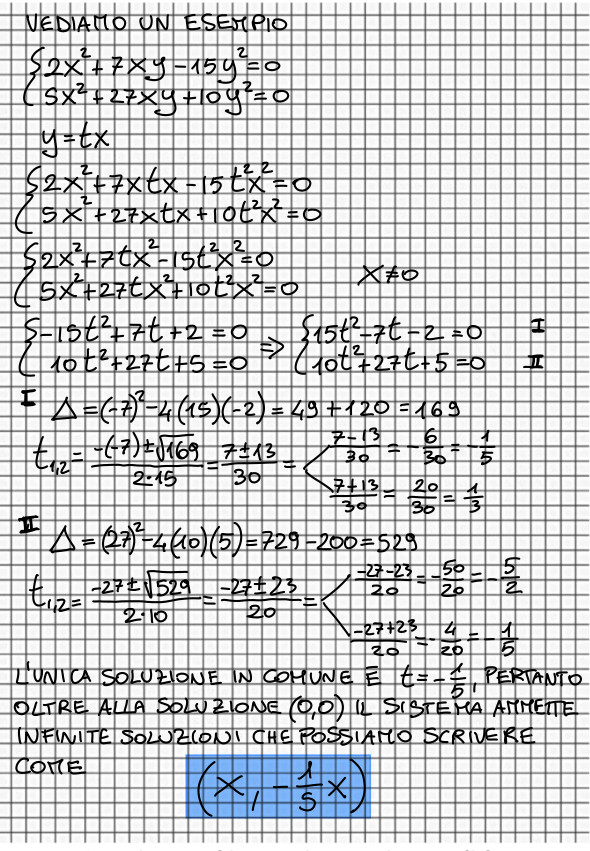 VEDIAMO UN ESEMPIO
{2x²+7xy-15y²=0
{5x²+27xy+10y²=0
y=tx
{2x²+7xtx-15t²x²=0
{5x²+27xtx+10t²x²=0
{2x²+7tx²-15t²x²=0
{5x²+27tx²+10t²x²=0 x≠0
{-15t²+7t+2=0 ⇒ {15t²-7t-2=0 I
{10t²+27t+5=0 {10t²+27t+5=0 II
I Δ=(-7)²-4(15)(-2)=49+120=169
t₁,₂= (-(-7)±√169)/(2·15) = (7±13)/30 = < (7-13)/30 = -6/30 = -1/5
(7+13)/30 = 20/30 = 1/3
II Δ=(27)²-4(10)(5)=729-200=529
t₁,₂= (-27±√529)/(2·10) = (-27±23)/20 = < (-27-23)/20 = -50/20 = -5/2
(-27+23)/20 = -4/20 = -1/5
L'UNICA SOLUZIONE IN COMUNE È t=-1/5, PERTANTO
OLTRE ALLA SOLUZIONE (0,0) IL SISTEMA AMMETTE
INFINITE SOLUZIONI CHE POSSIAMO SCRIVERE
COME
(x, -1/5 x)